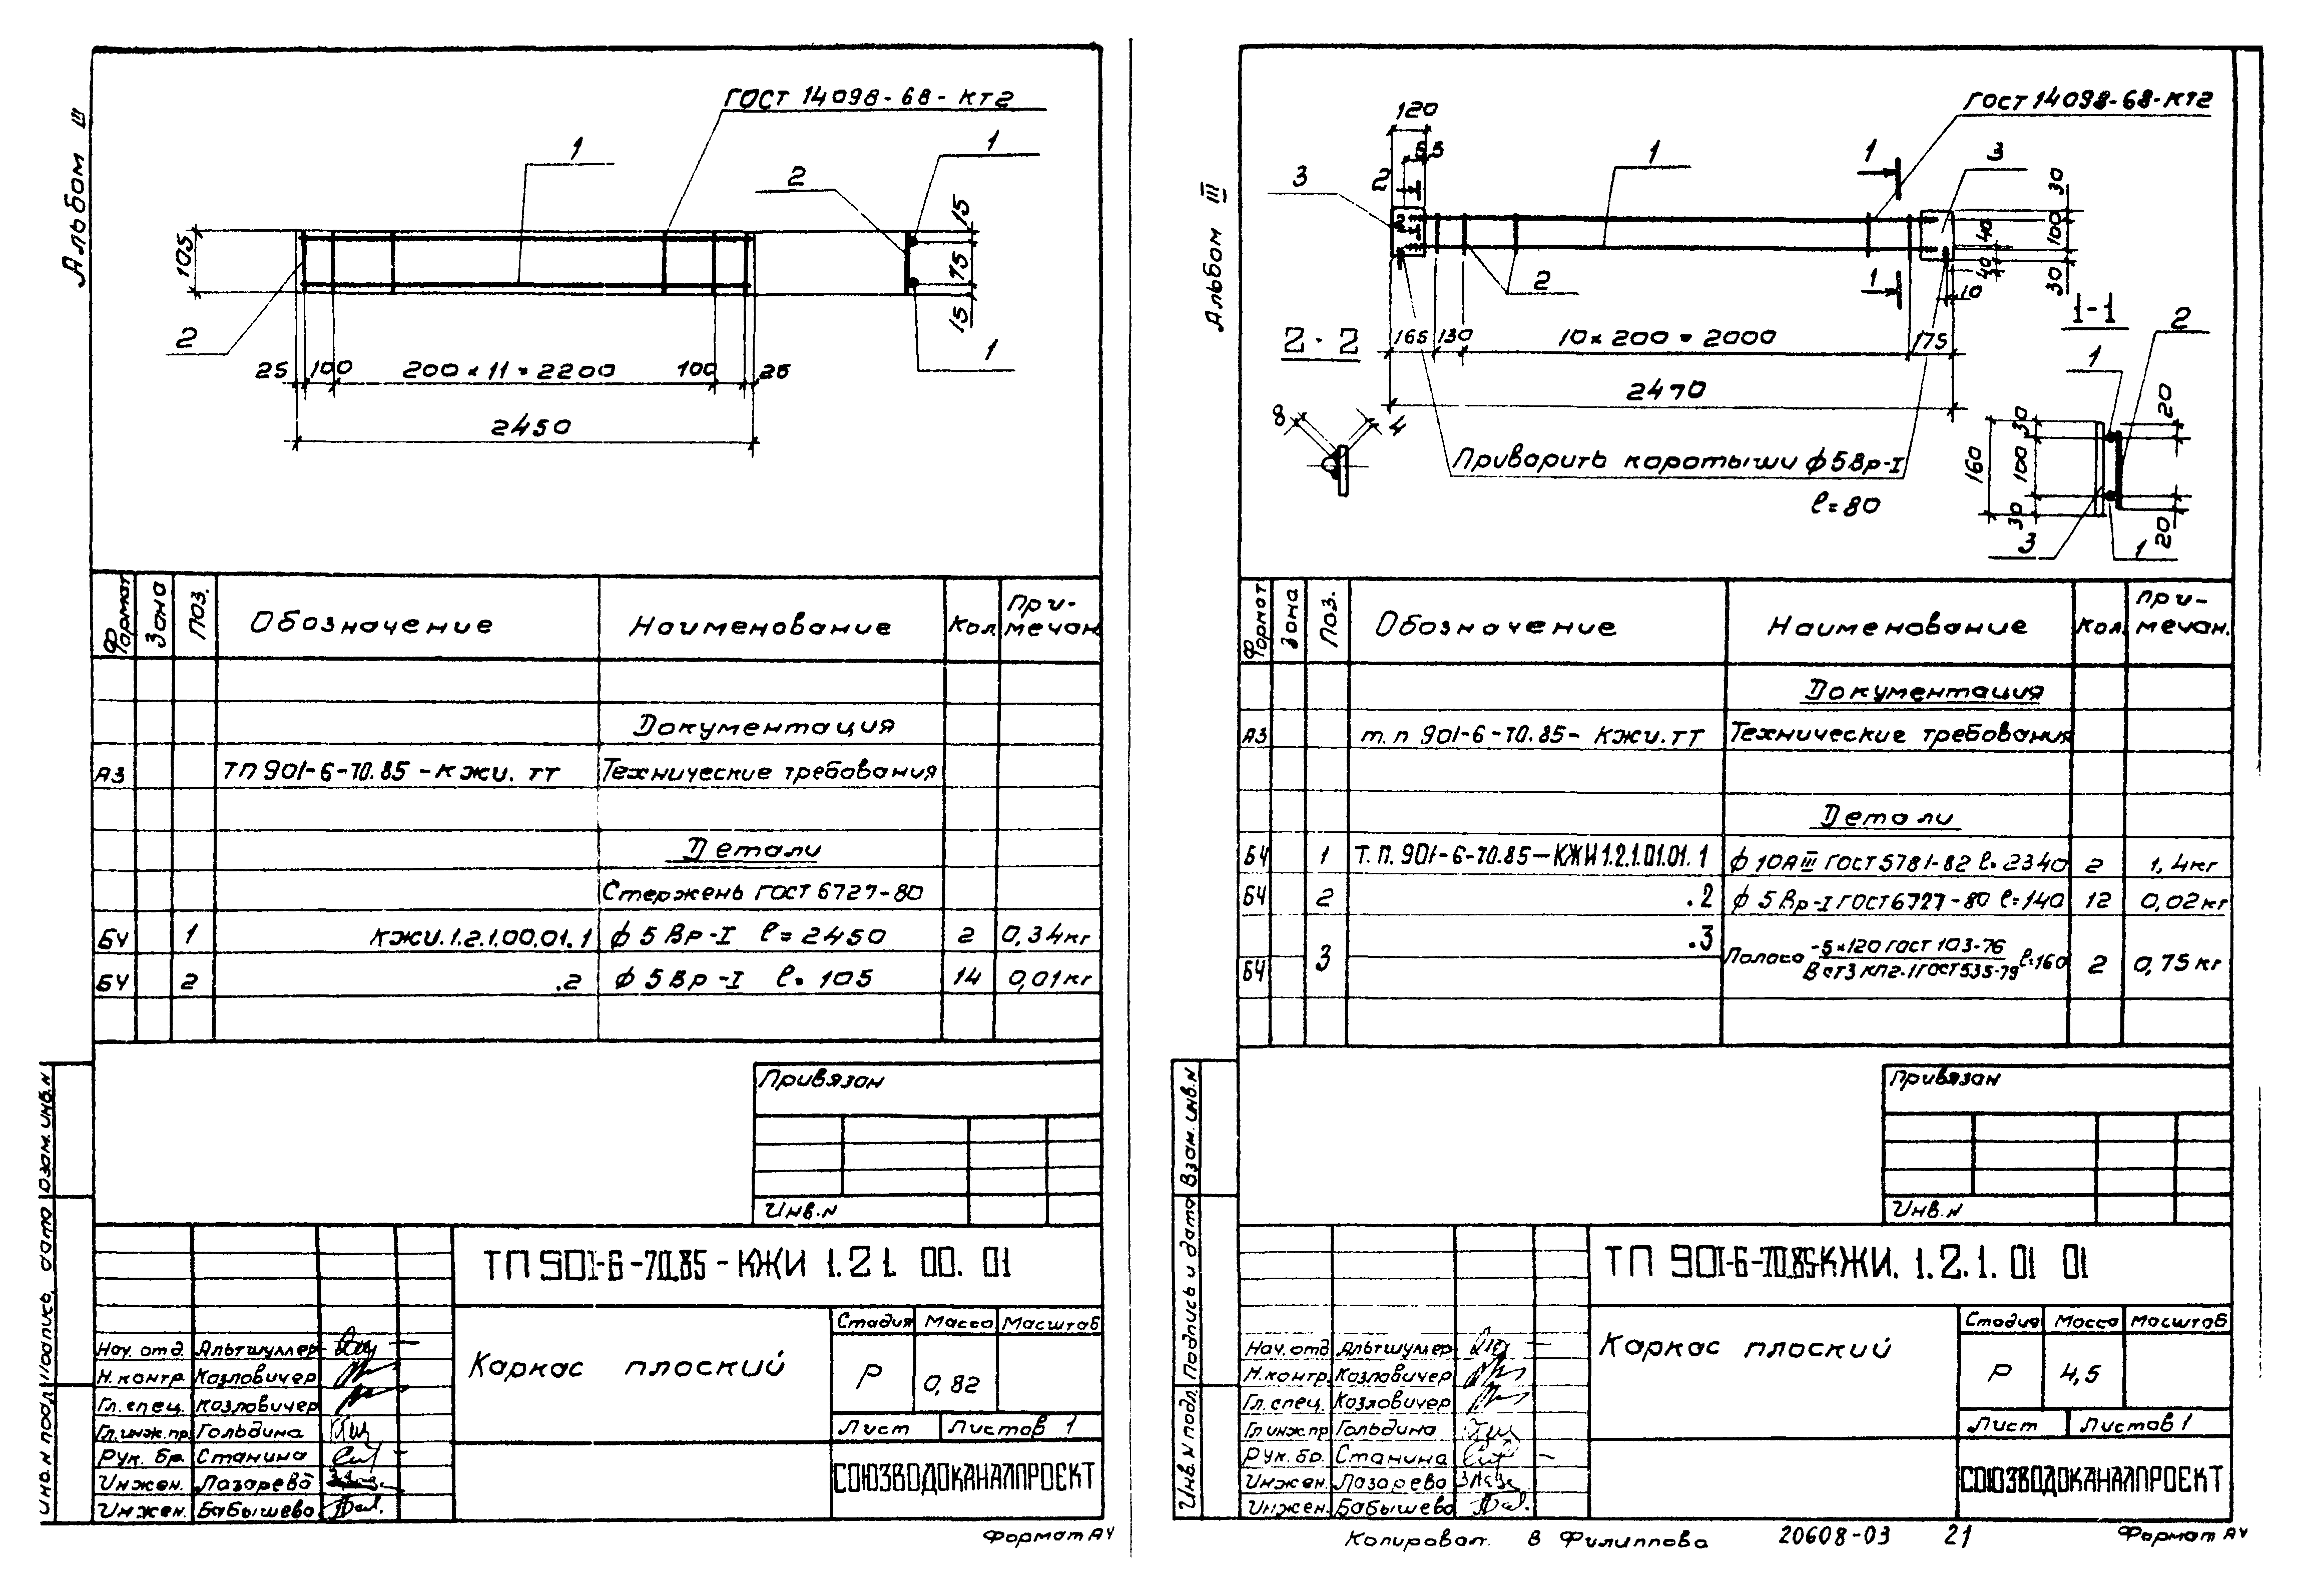 Альбом III
ГОСТ 14098-68-КТ2
1
1
2
105
15
75
15
2
1
25 100 200×11=2200 100 25
2450
Формат Зона Поз. Обозначение Наименование Кол. Примечан.
Документация
А3 ТП 901-6-70.85-КЖИ.ТТ Технические требования
Детали
Стержень ГОСТ 6727-80
БЧ 1 КЖИ.1.2.1.00.01.1 ф 5 Вр-I ℓ=2450 2 0,34кг
БЧ 2 .2 ф 5 Вр-I ℓ=105 14 0,01кг
Привязан
Инв.N
Инв.N подл Подпись, дата Взам. инв.N
ТП 901-6-70.85-КЖИ 1.2.1. 00. 01
Каркас плоский
Стадия Масса Масштаб
Р 0,82
Лист Листов 1
СОЮЗВОДОКАНАЛПРОЕКТ
Нач. отд. Альтшуллер
Н. контр. Козловичер
Гл. спец. Козловичер
Гл. инж. пр. Гольдина
Рук. бр. Станина
Инжен. Лазарева
Инжен. Бабышева
Формат А4
Альбом III
ГОСТ 14098-68-КТ2
120
55
3
2
1
1
3
30
100
40
40
30
10
2
1
2-2
165 130 10×200=2000 175
2470
1-1
8 4
Приварить коротыши ф5Вр-I
ℓ=80
1
2
160
30
100
30
20
20
3
1
Формат Зона Поз. Обозначение Наименование Кол. Примечан.
Документация
А3 т.п 901-6-70.85-КЖИ.ТТ Технические требования
Детали
БЧ 1 Т.П.901-6-70.85-КЖИ1.2.1.01.01.1 ф 10АIII ГОСТ5781-82 ℓ=2340 2 1,4кг
БЧ 2 .2 ф 5 Вр-I ГОСТ6727-80 ℓ=140 12 0,02кг
БЧ 3 .3 Полоса -5×120 ГОСТ 103-76 ℓ=160 2 0,75кг
Вст3 кп2-1 ГОСТ535-79
Привязан
Инв.N
Инв.N подл. Подпись и дата Взам. инв.N
ТП 901-6-70.85-КЖИ. 1.2.1. 01 01
Каркас плоский
Стадия Масса Масштаб
Р 4,5
Лист Листов 1
СОЮЗВОДОКАНАЛПРОЕКТ
Нач. отд Альтшуллер
Н. контр. Козловичер
Гл. спец. Козловичер
Гл инж. пр Гольдина
Рук. бр. Станина
Инжен. Лазарева
Инжен. Бабышева
Копировал. В Филиппова 20608-03 21 Формат А4